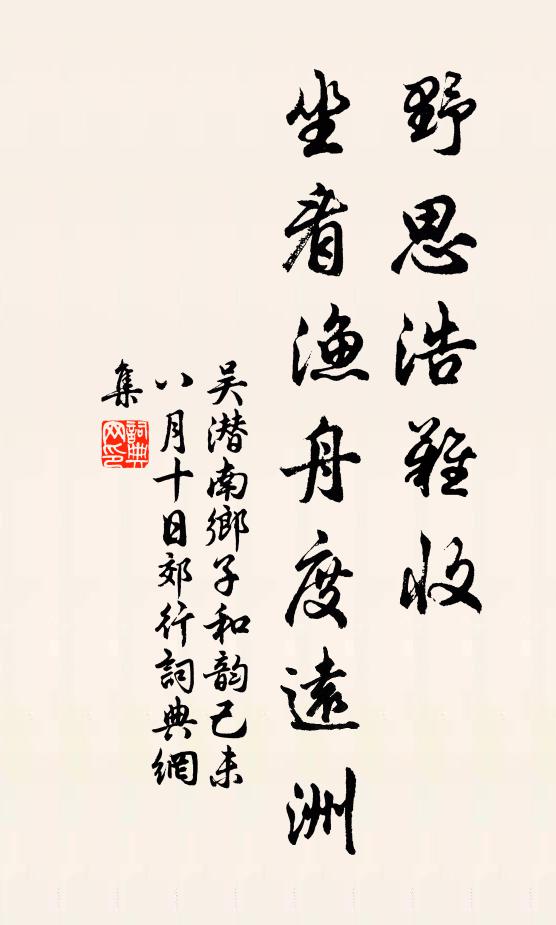 野思浩難收
坐看漁舟度遠洲
吴潛南鄉子和韵己未
八月十日郊行詞典網
集
詞典
网印